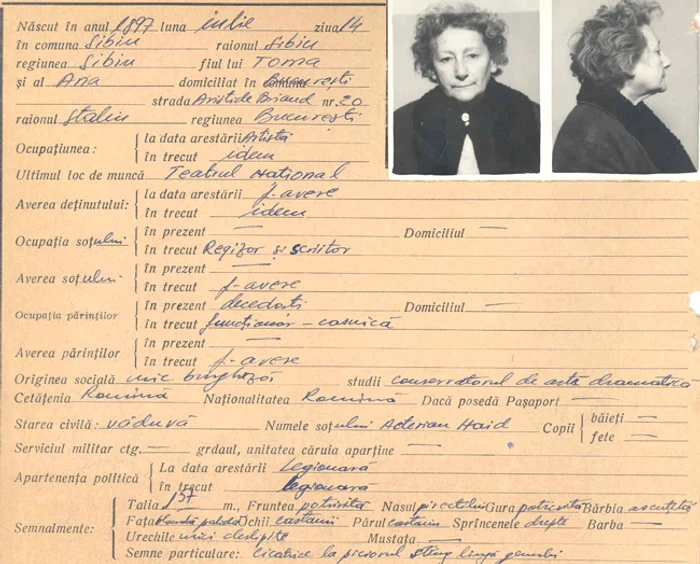 Născut în anul 1897 luna iulie ziua 14
în comuna Sibiu raionul Sibiu
regiunea Sibiu fiul lui Toma
și al Ana domiciliat în București
strada Aristide Briand nr. 20
raionul Stalin regiunea București
Ocupațiunea: la data arestării Artistă
în trecut idem
Ultimul loc de muncă Teatrul Național
Averea deținutului: la data arestării f. avere
în trecut idem
Ocupația soțului în prezent — Domiciliul —
în trecut Regizor și scriitor
Averea soțului în prezent —
în trecut f. avere
Ocupația părinților în prezent decedați Domiciliul —
în trecut funcționar – casnică
Averea părinților în prezent —
în trecut f. avere
Originea socială mic burgheză studii conservatorul de artă dramatică
Cetățenia Română Naționalitatea Română Dacă posedă Pașaport —
Starea civilă: văduvă Numele soțului Acterian Haid Copii băieți —
fete —
Serviciul militar ctg. — grdaul, unitatea căruia aparține —
Apartenența politică La data arestării legionară
în trecut legionară
Semnalmente: Talia 157 m., Fruntea potrivită Nasul Gura potrivită Bărbia ascuțită
Fața palidă Ochii castanii Părul castaniu Sprîncenele drepte Barba —
Urechile mici deslipite Mustața —
Semne particulare: cicatrice la piciorul stîng lîngă genunchi